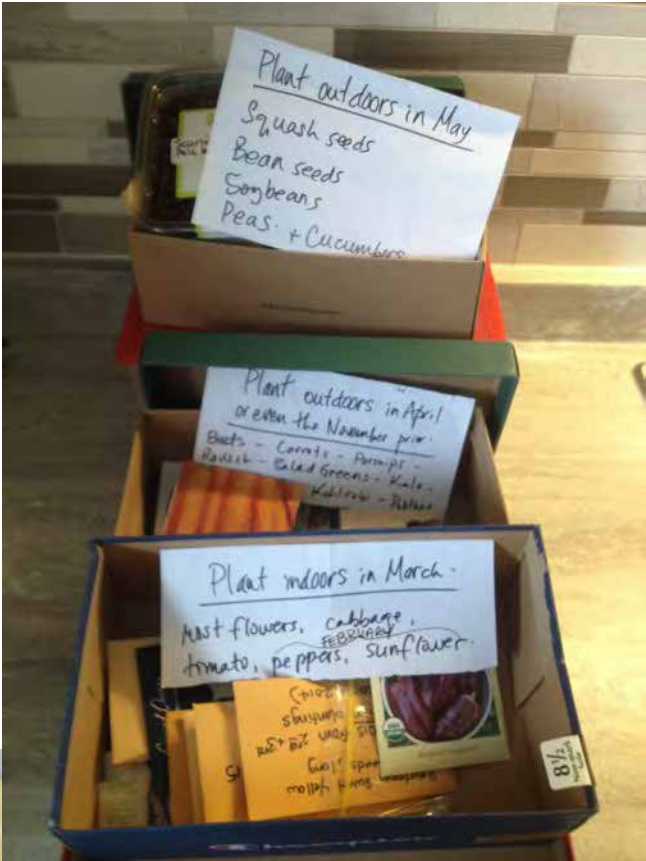 Plant outdoors in May
Squash seeds
Bean seeds
Soybeans
Peas. + Cucumbers
Plant outdoors in April
or even the November prior.
Beets - Carrots - Parsnips -
Radish - Salad Greens - Kale -
Kohlrabi -
Plant indoors in March.
Most flowers, cabbage,
FEBRUARY
tomato, peppers, sunflower.
2014)
plantings
from 2nd + 3rd
yellow
8 1/2